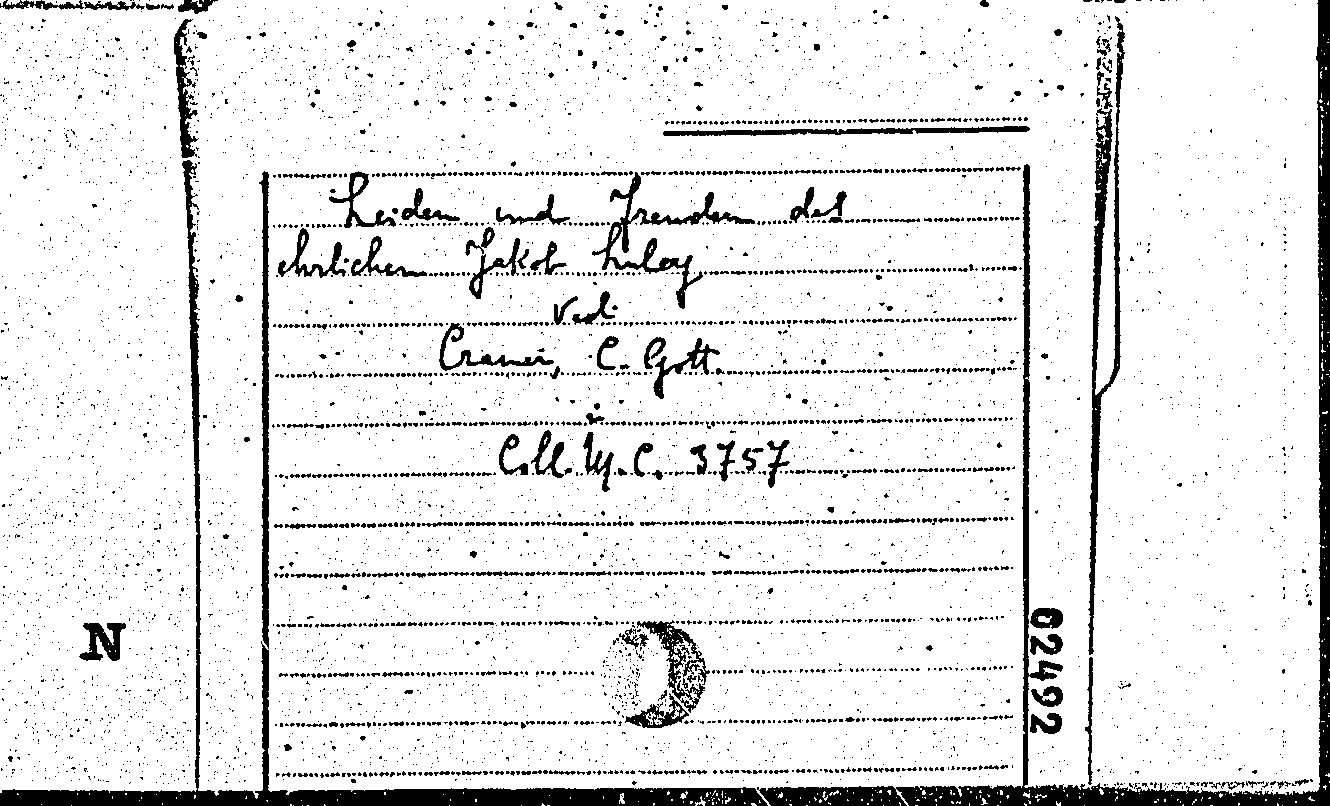 Leiden und Freuden des
ehrlichen Jakob Luley
Vedi
Cramer, C. Gott.
in
Coll. M. C. 3757
N
02492